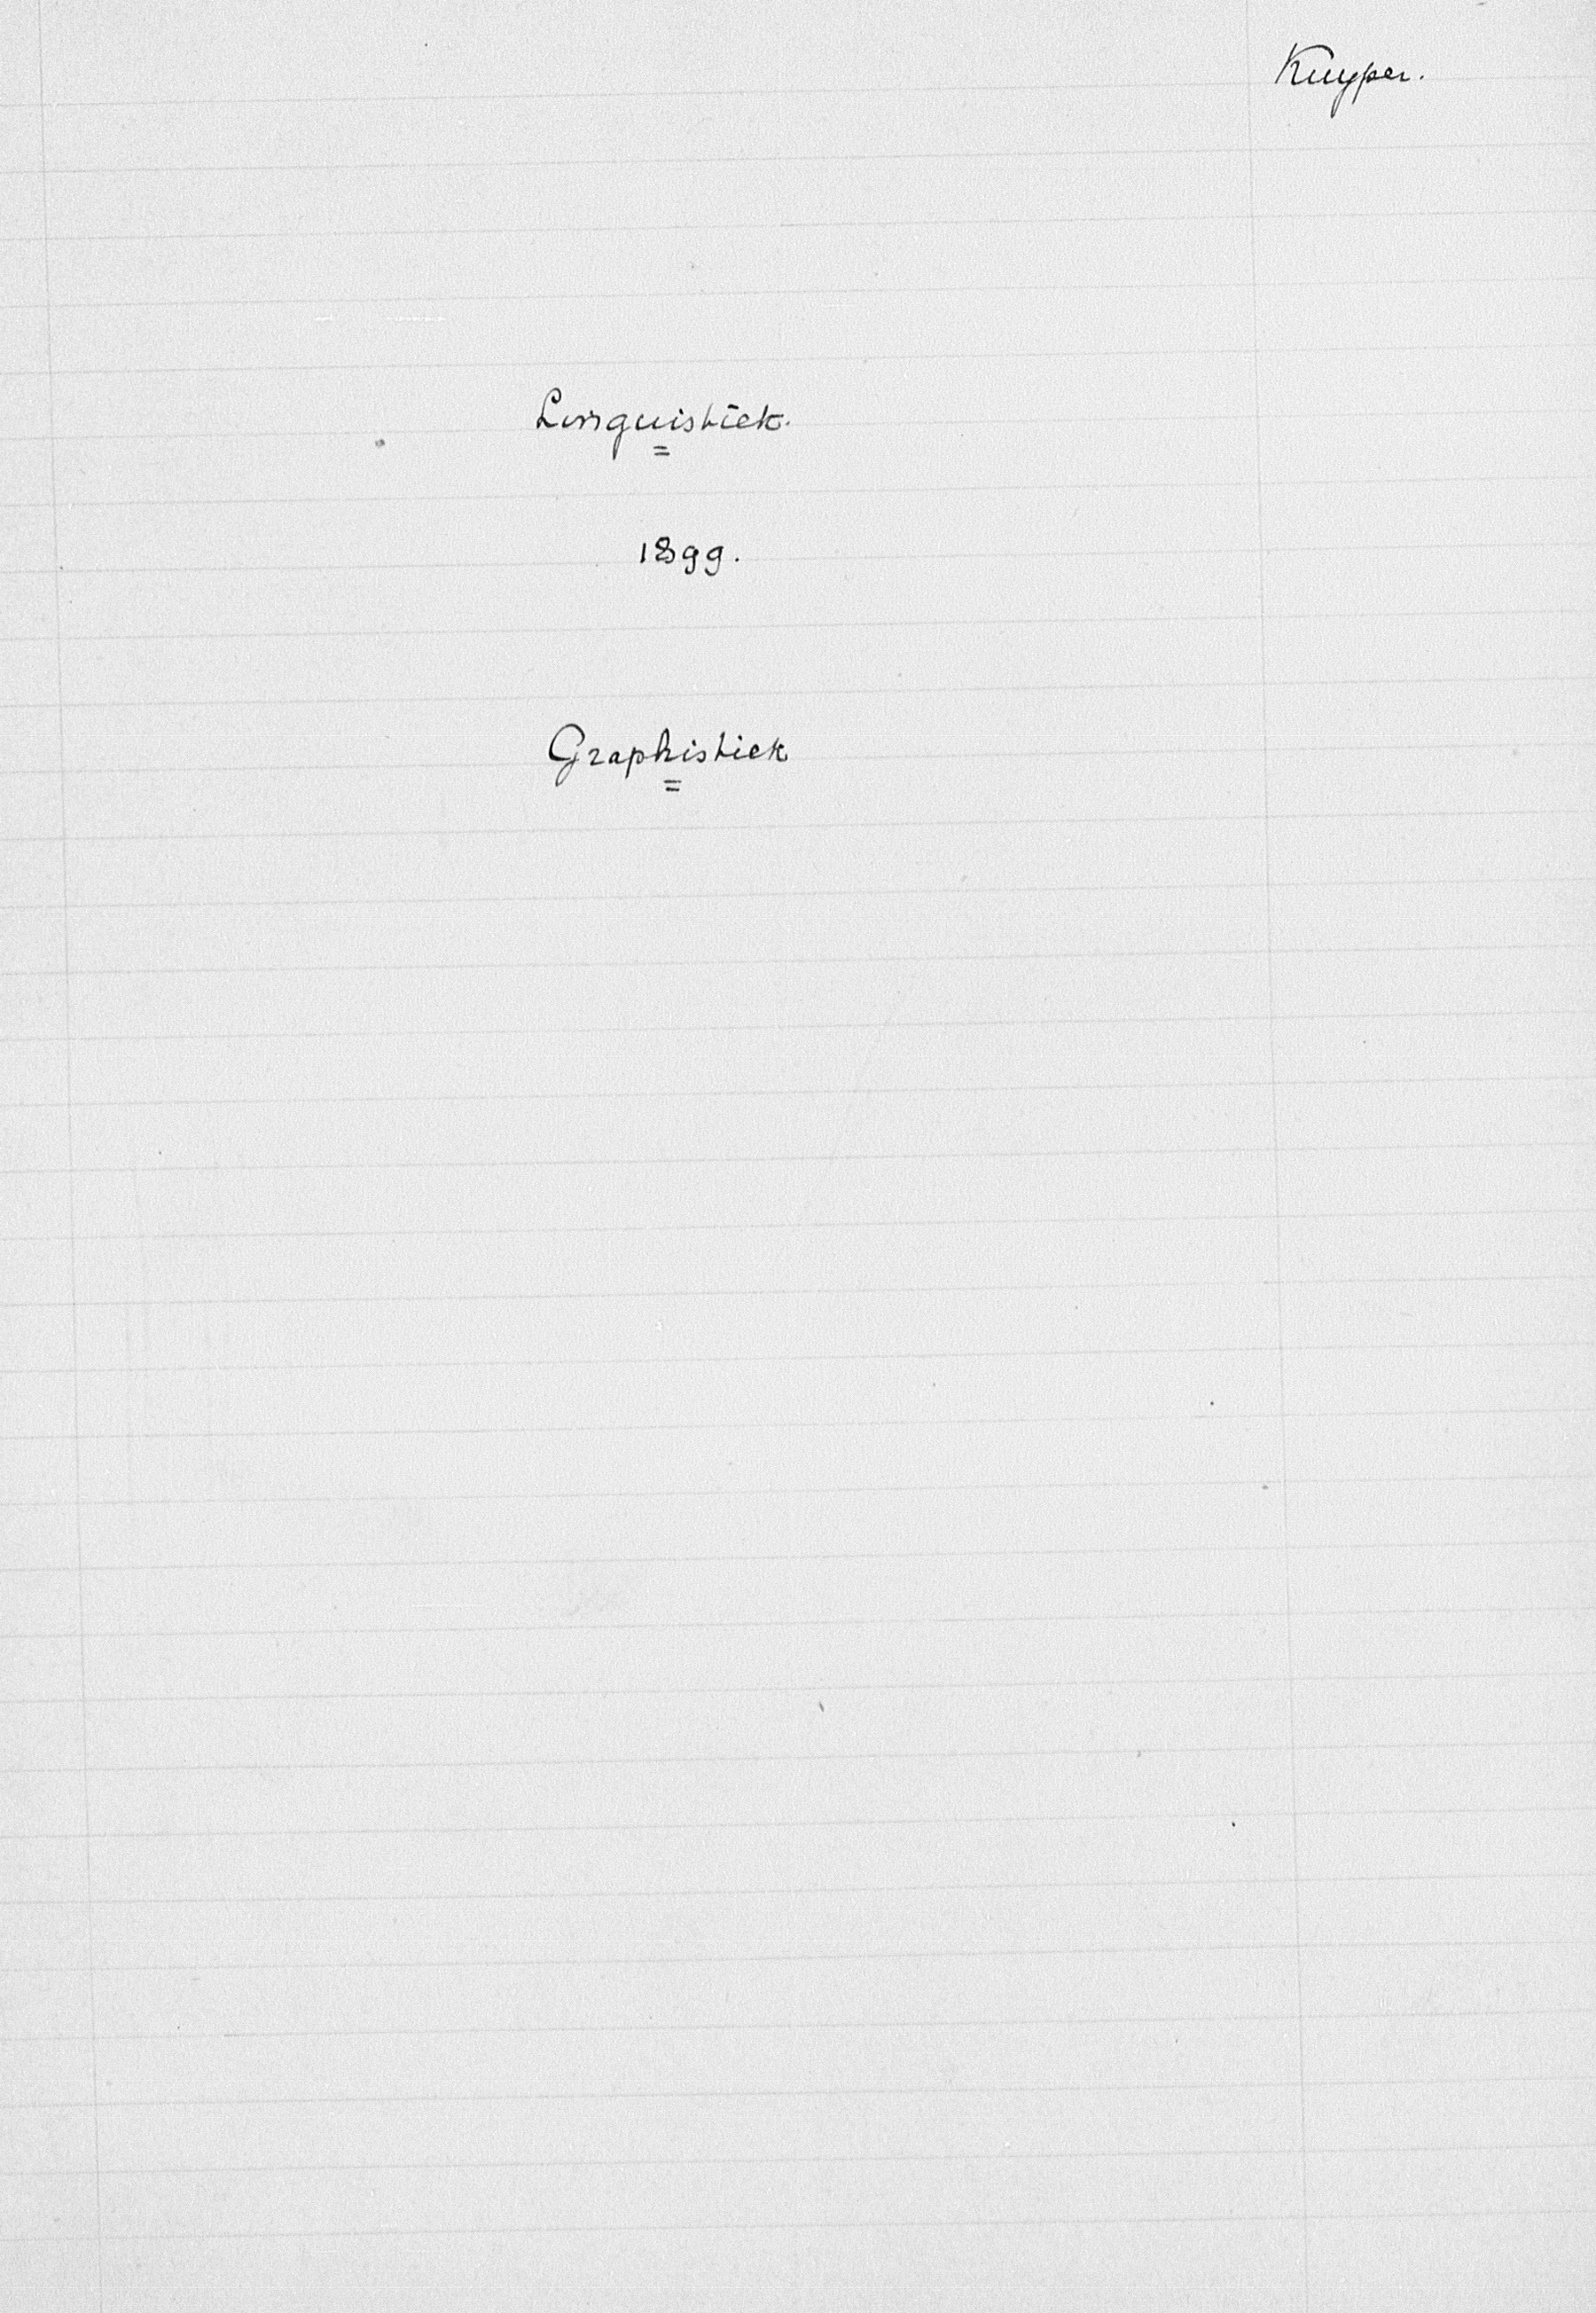 Kuyper.
Linguistiek.
=
1899.
Graphistiek
=